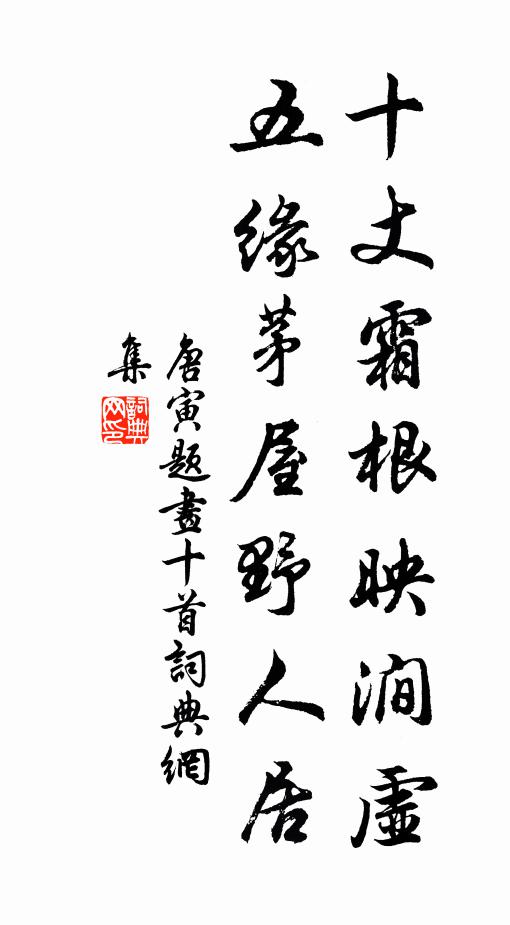 十丈霜根映澗虛
五緣茅屋野人居
唐寅題畫十首詞典網
集
詞典網印